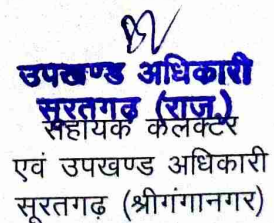 उपखण्ड अधिकारी
सूरतगढ़ (राज.)
सहायक कलक्टर
एवं उपखण्ड अधिकारी
सूरतगढ़ (श्रीगंगानगर)